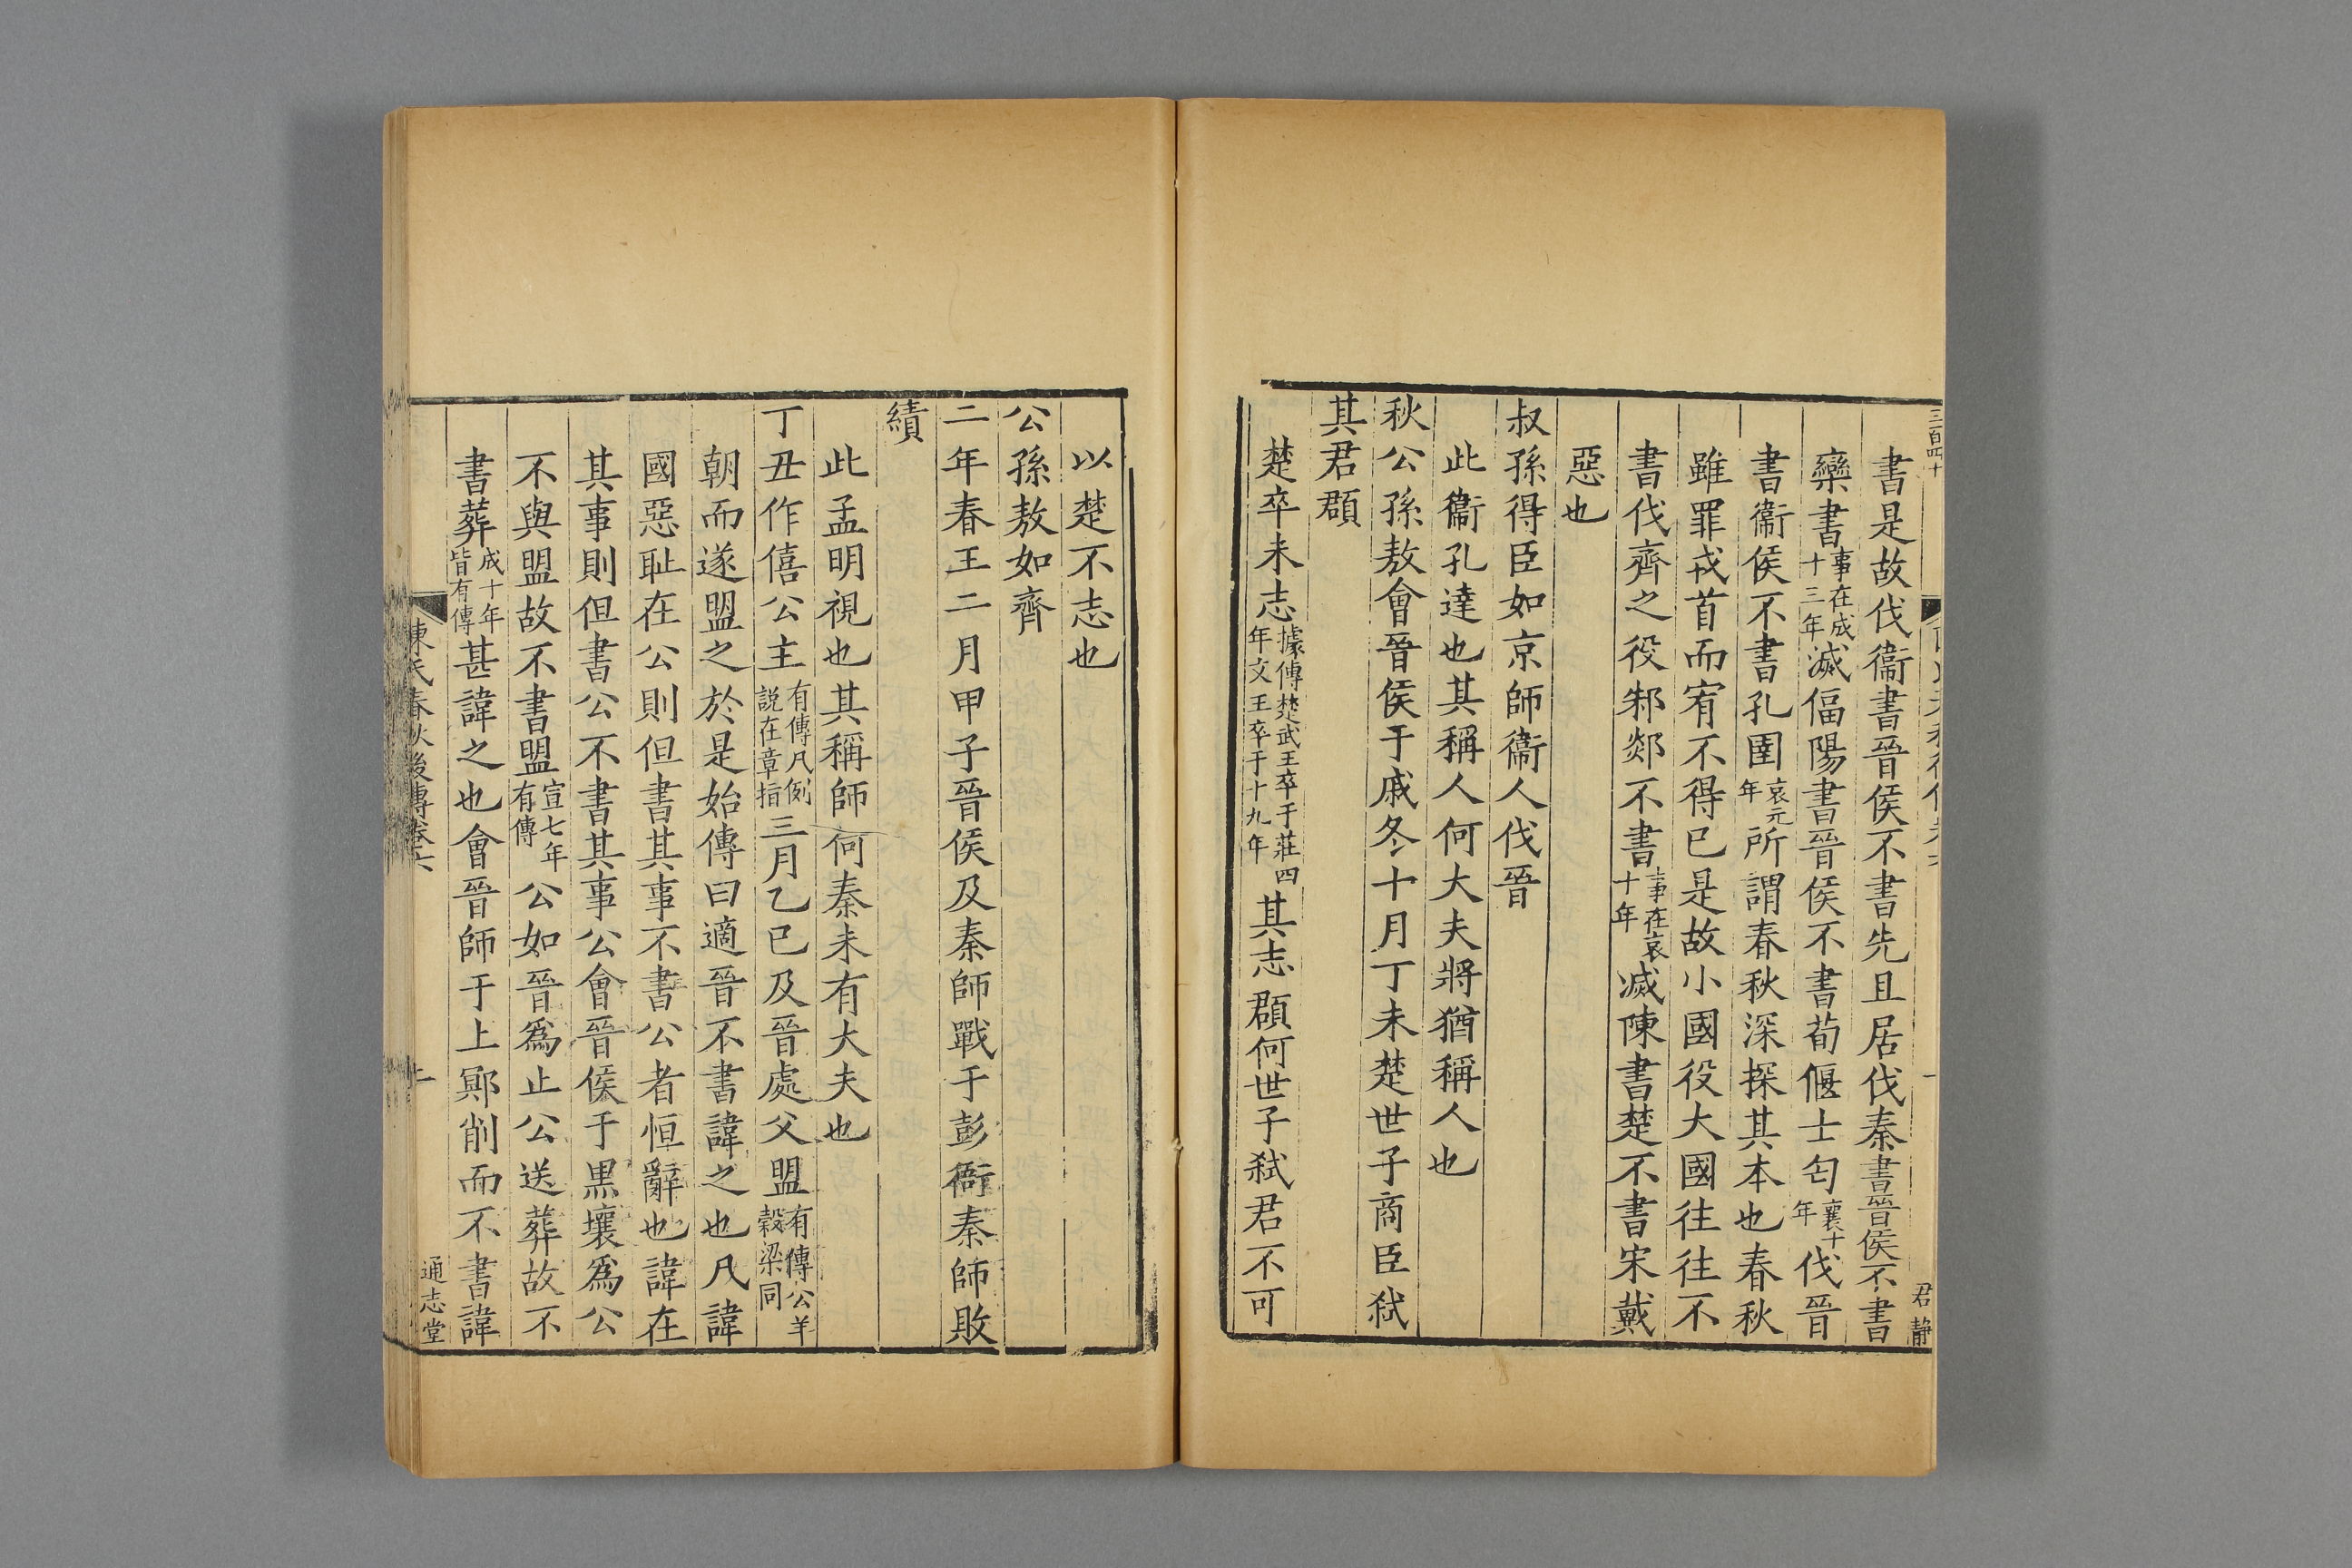 三百四十
君靜
書是故伐衞書晉侯不書先且居伐秦書晉侯不書
欒書事在成十三年滅偪陽書晉侯不書荀偃士匄襄十年伐晉
書衞侯不書孔圉哀元年所謂春秋深探其本也春秋
雖罪戎首而宥不得已是故小國役大國往往不
書伐齊之役邾郯不書事在哀十年滅陳書楚不書宋戴
惡也
叔孫得臣如京師衞人伐晉
此衞孔達也其稱人何大夫將猶稱人也
秋公孫敖會晉侯于戚冬十月丁未楚世子商臣弑
其君頵
楚卒未志據傳楚武王卒于莊四年文王卒于十九年其志頵何世子弑君不可
以楚不志也
公孫敖如齊
二年春王二月甲子晉侯及秦師戰于彭衙秦師敗
績
此孟明視也其稱師何秦未有大夫也
丁丑作僖公主有傳凡例説在章指三月乙巳及晉處父盟有傳公羊穀梁同
朝而遂盟之於是始傳曰適晉不書諱之也凡諱
國惡耻在公則但書其事不書公者恒辭也諱在
其事則但書公不書其事公會晉侯于黒壤爲公
不與盟故不書盟宣七年有傳公如晉爲止公送葬故不
書葬成十年皆有傳甚諱之也會晉師于上鄍削而不書諱
陳氏春秋後傳卷六
通志堂